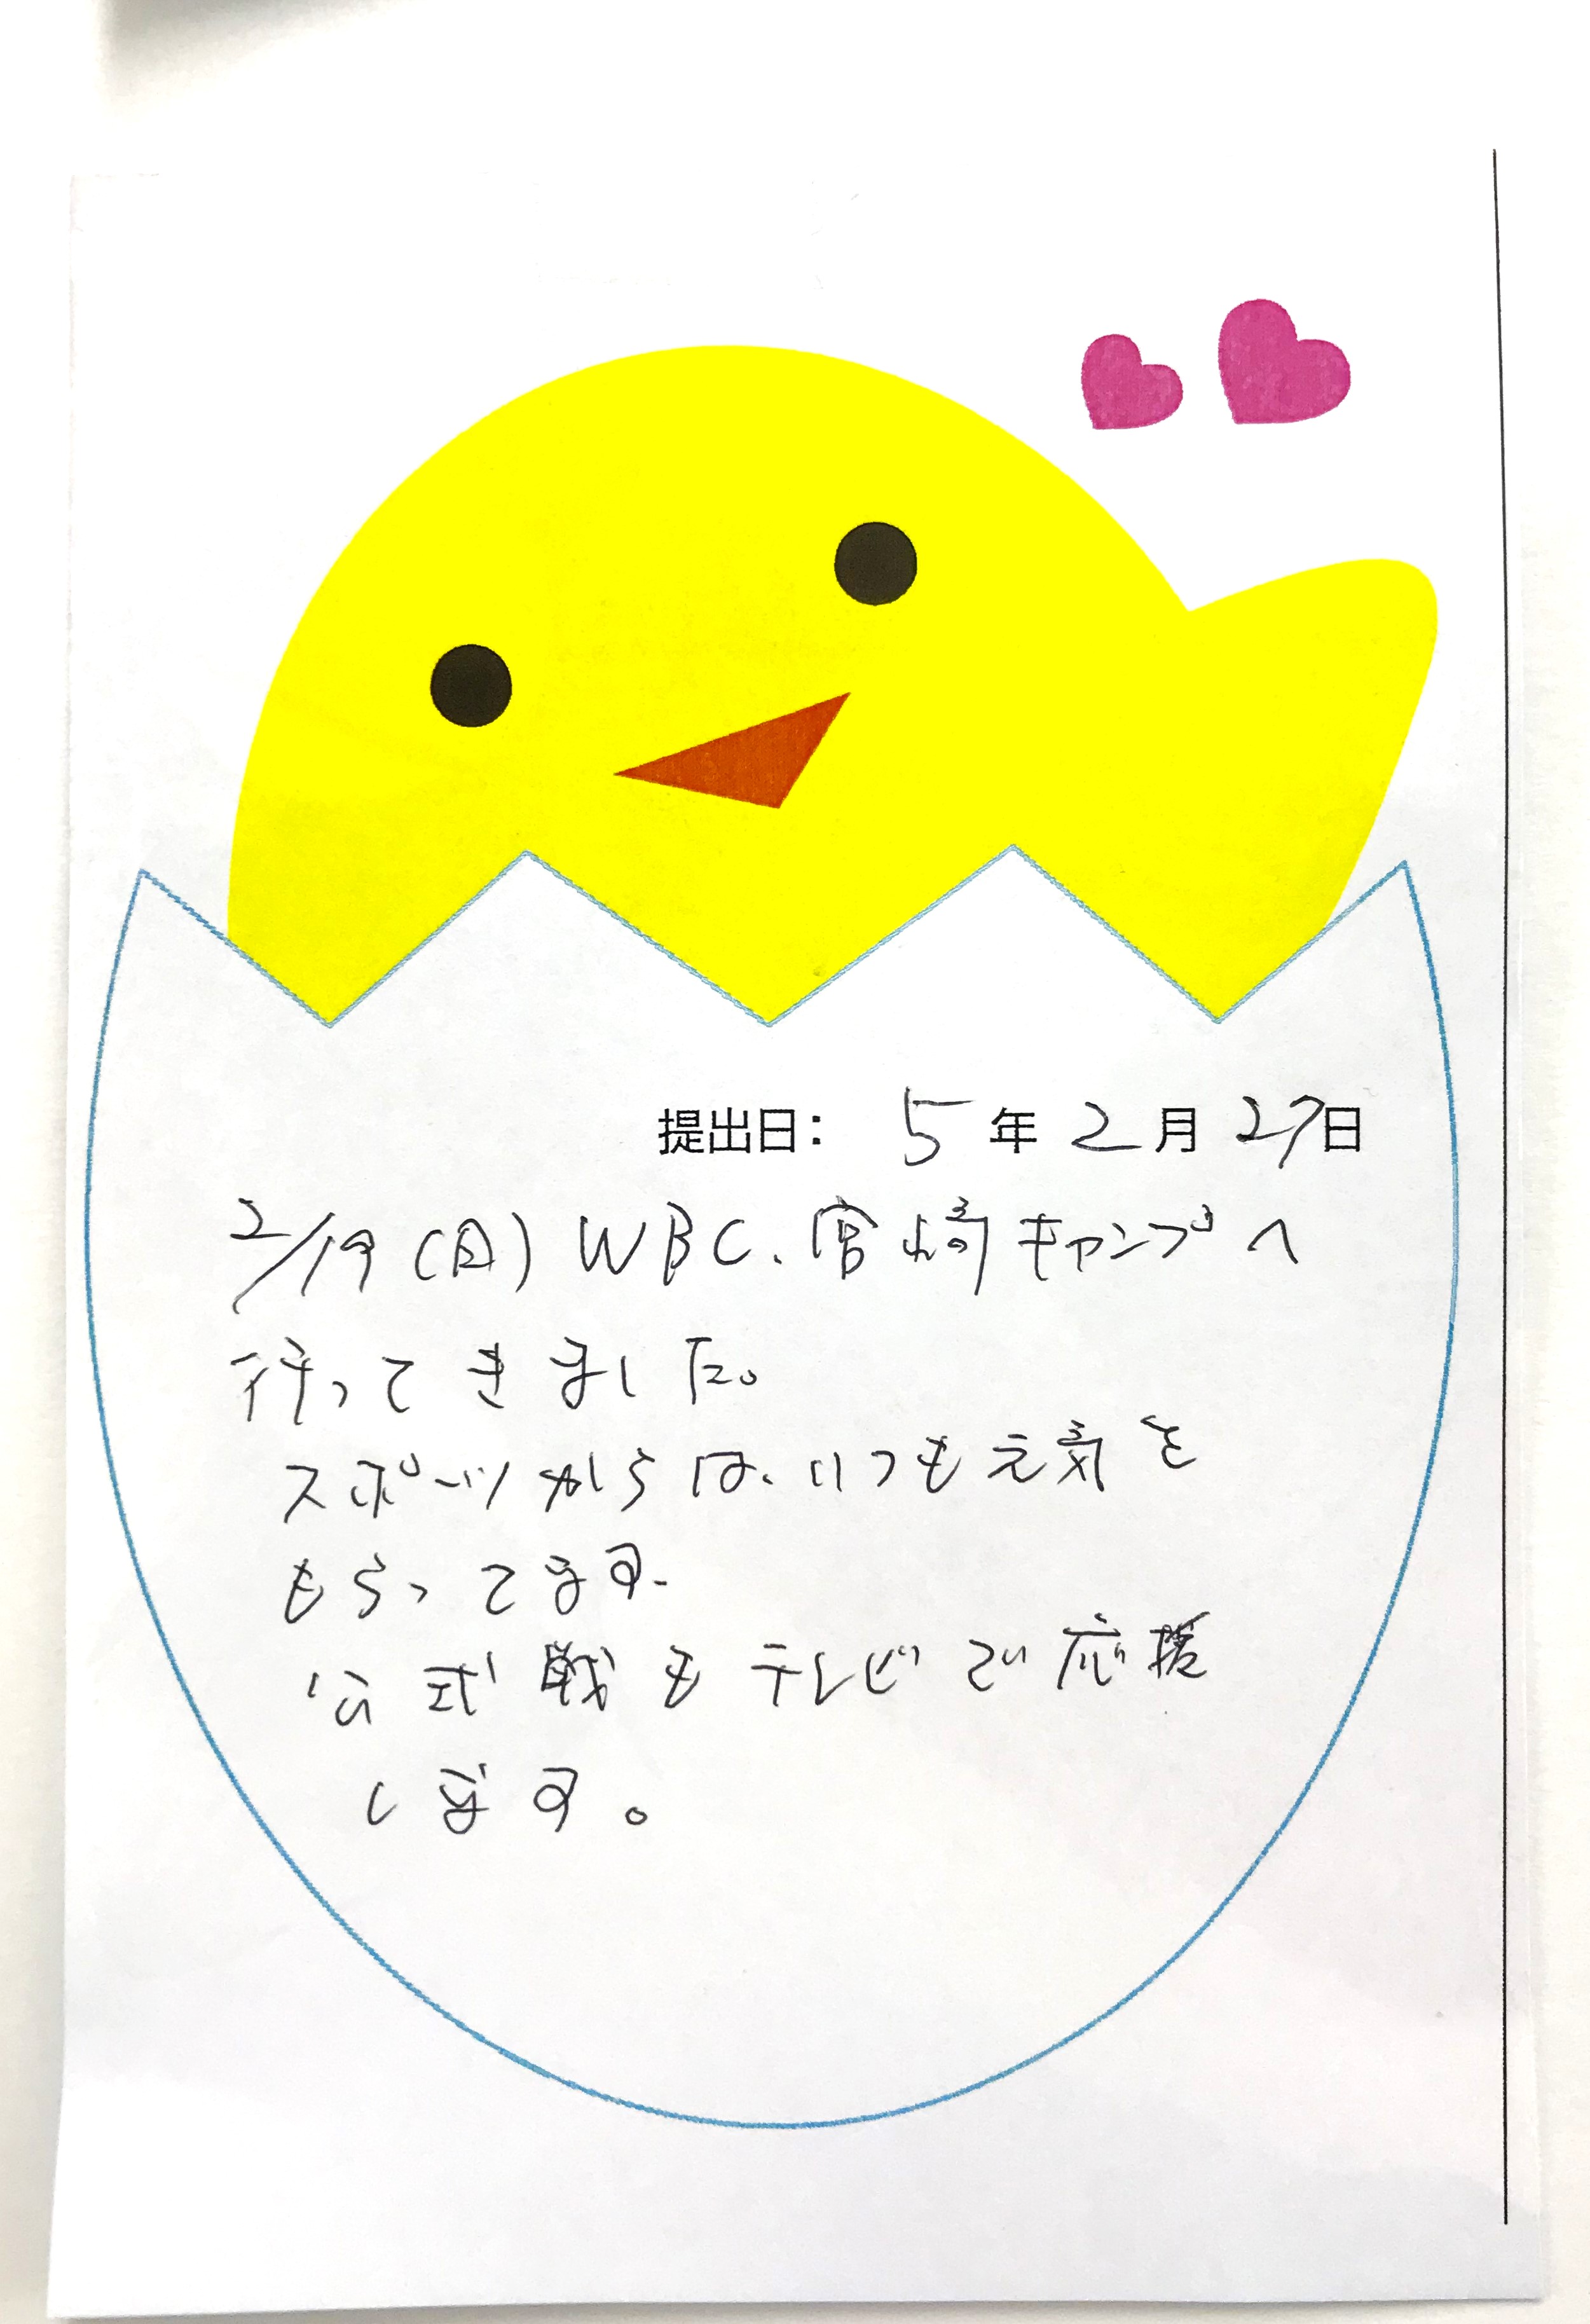 提出日： 5 年 2 月 27日
2/19(日) WBC、宮崎キャンプへ
行ってきました。
スポーツからは、いつも元気を
もらってます。
公式戦もテレビで応援
します。